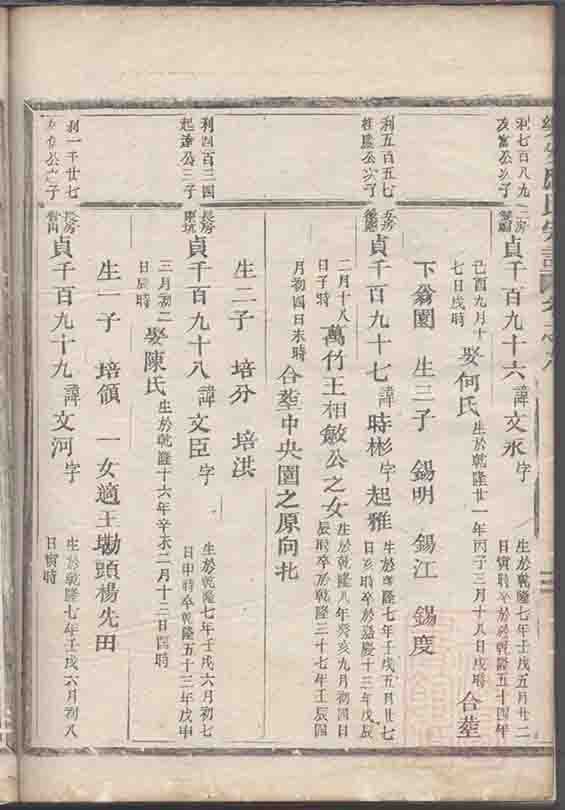 利七百八九
友富公次子
二房
貞千百九十六 諱文永 字
生於乾隆七年壬戌五月廿二
日寅時卒於乾隆五十四年
己酉九月十
七日戌時
娶何氏
生於乾隆廿一年丙子三月十八日戌時
合塟
下翁園 生三子 錫明 錫江 錫度
利五百五七
貞千百九十七 諱時彬 字起雅
生於乾隆七年壬戌五月廿七
日亥時卒於嘉慶十三年戊辰
二月十八
日子時
萬竹王相敏公之女
生於乾隆八年癸亥九月初四日
辰時卒於乾隆三十七年壬辰四
月初四日未時
合塟中央園之原向北
利四百三四
起達公三子
長房
貞千百九十八 諱文臣 字
生於乾隆七年壬戌六月初七
日申時卒乾隆五十三年戊申
三月初二
日辰時
娶陳氏
生於乾隆十六年辛未二月十二日酉時
生二子 培分 培洪
利一千廿七
長房
貞千百九十九 諱文河 字
生於乾隆七年壬戌六月初八
日寅時
生一子 培領 一女適王墈頭楊先田